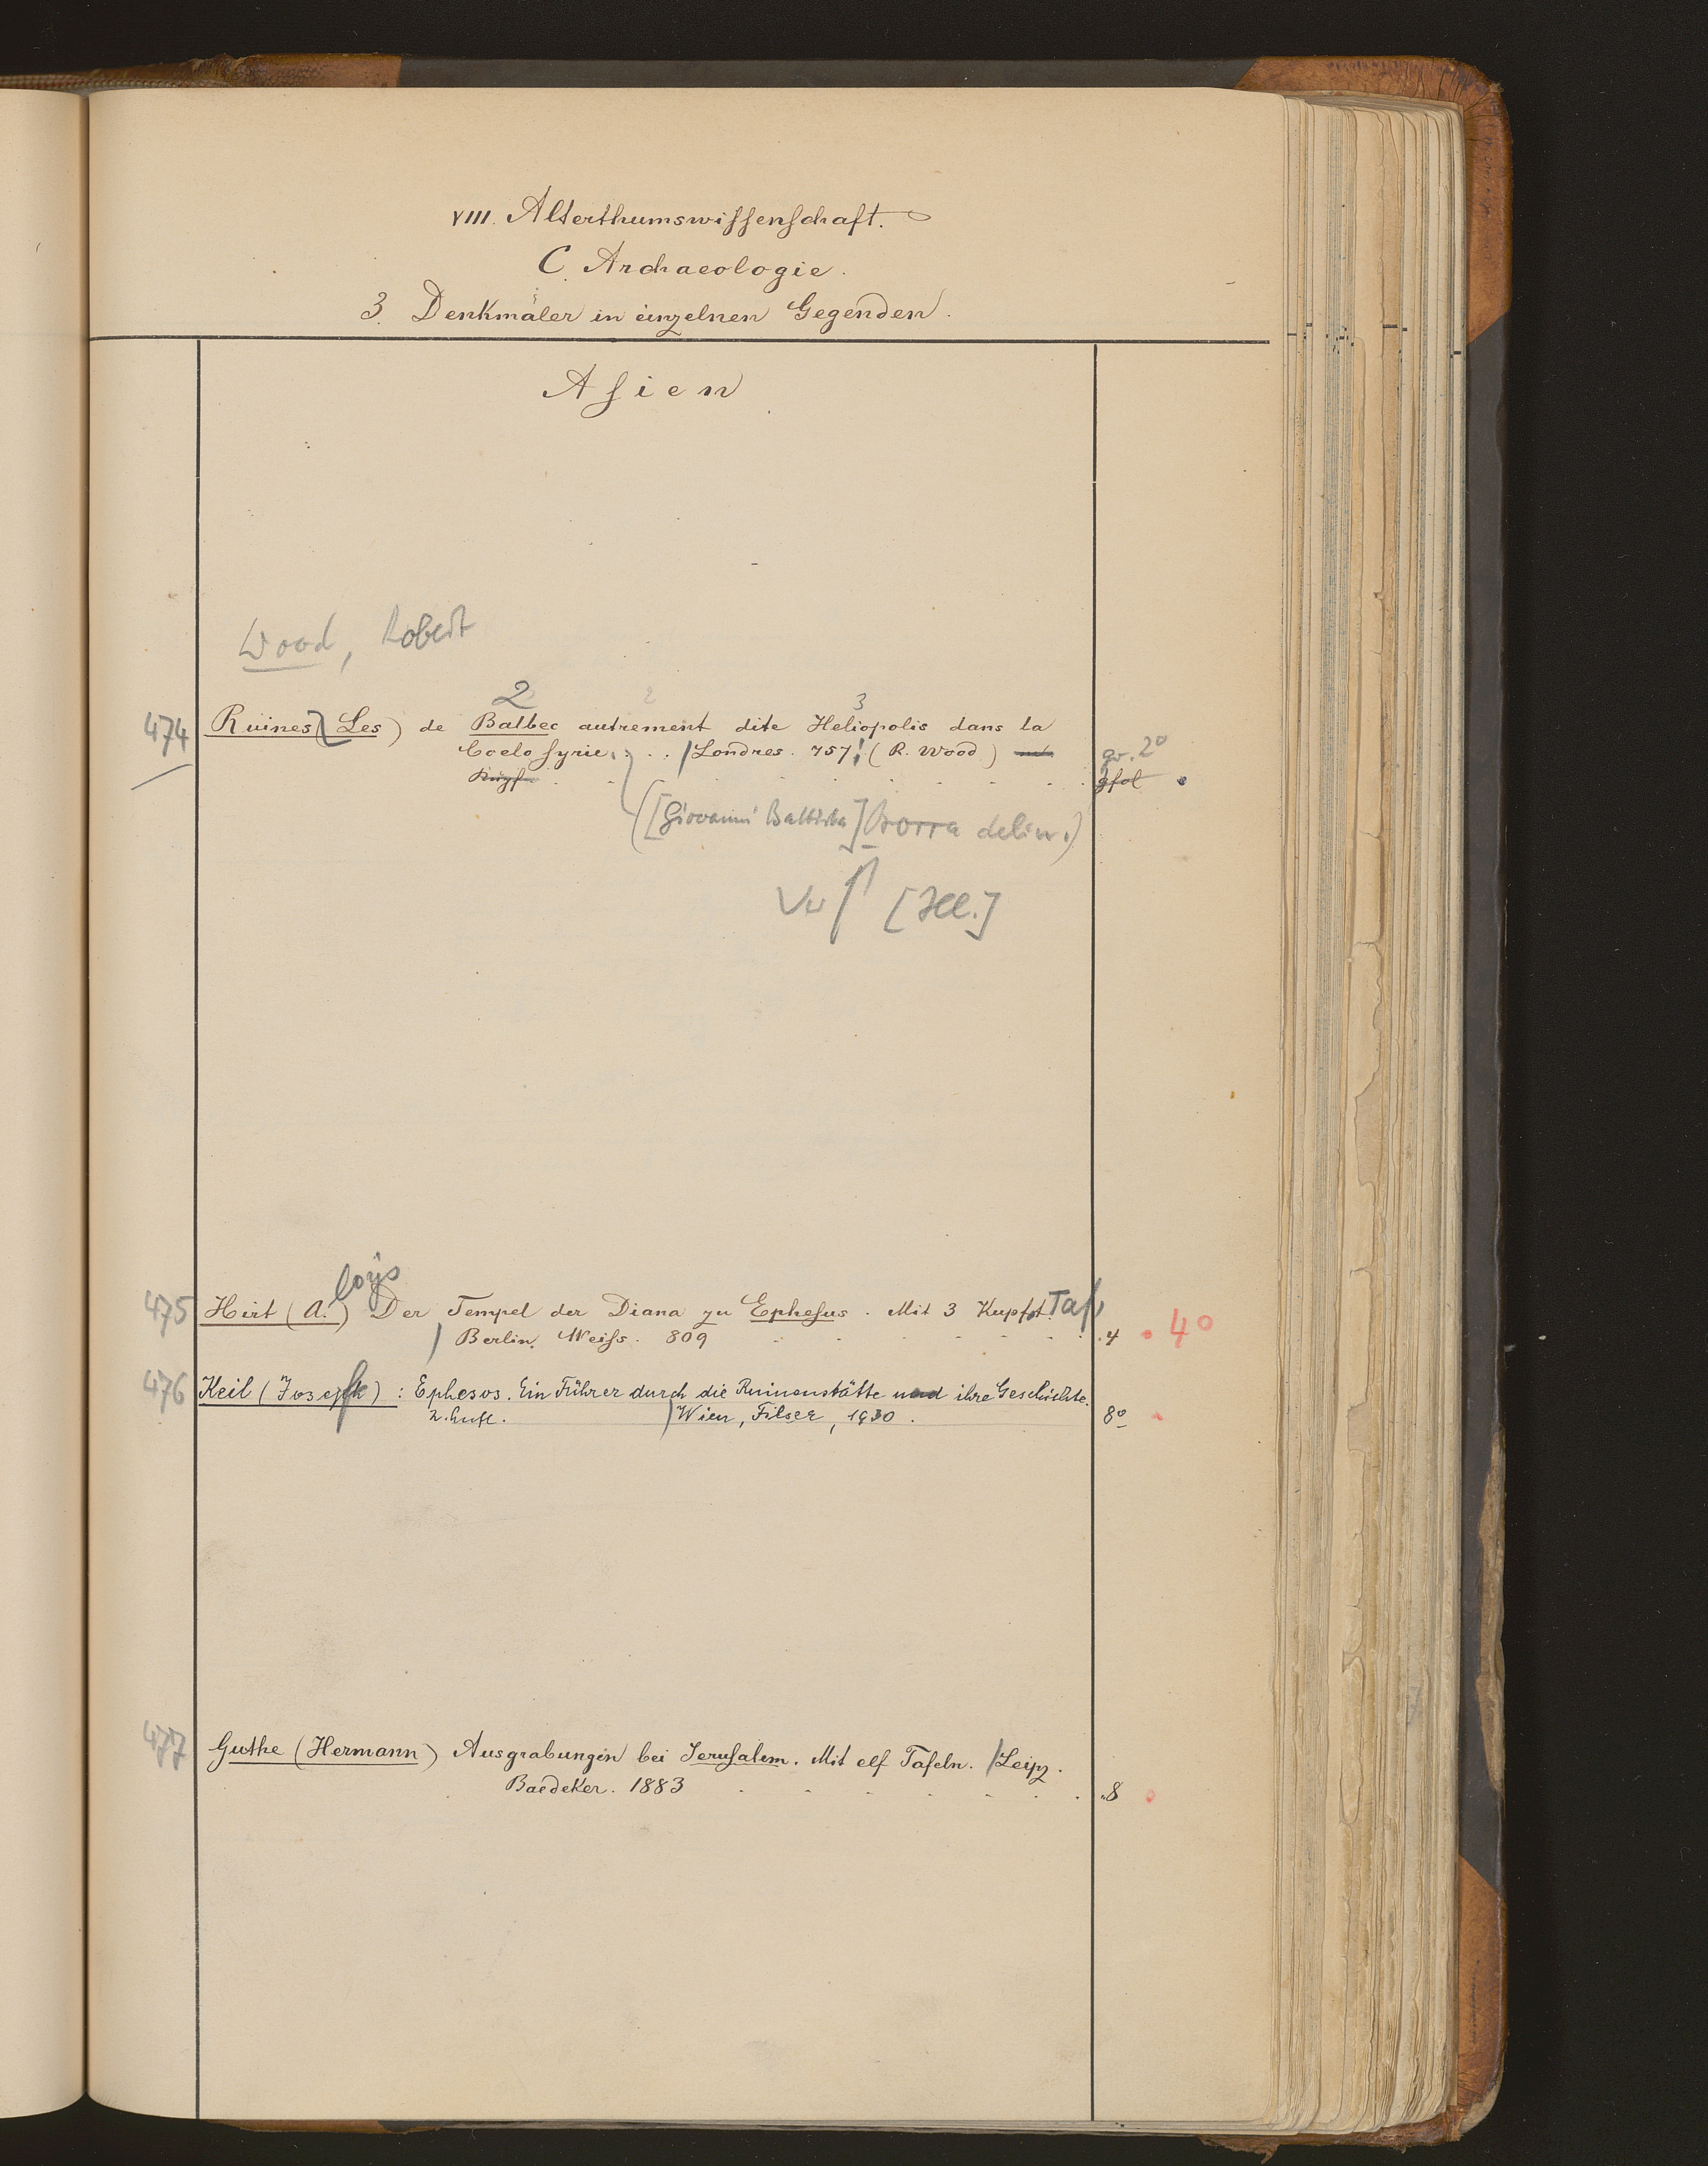 VIII. Alterthumswissenschaft.
C. Archaeologie.
3. Denkmäler in einzelnen Gegenden.
Asien
Wood, Robert
2 3
474 Ruines (Les) de Balbec autrement dite Heliopolis dans la
Coelosyrie. / Londres. 757. (R. Wood) gr. 2°
Kupf. gfol
([Giovanni Battista] Borra delin.)
Verf [Ill.]
loys
475 Hirt (A.) Der Tempel der Diana zu Ephesus. Mit 3 Kupft. Taf
/ Berlin. Weiss. 809 4 4°
476 Keil (Joseph): Ephesos. Ein Führer durch die Ruinenstätte und ihre Geschichte.
2. Aufl. / Wien, Filser, 1930. 8°
477 Guthe (Hermann) Ausgrabungen bei Jerusalem. Mit elf Tafeln. / Leipz.
Baedeker. 1883 8